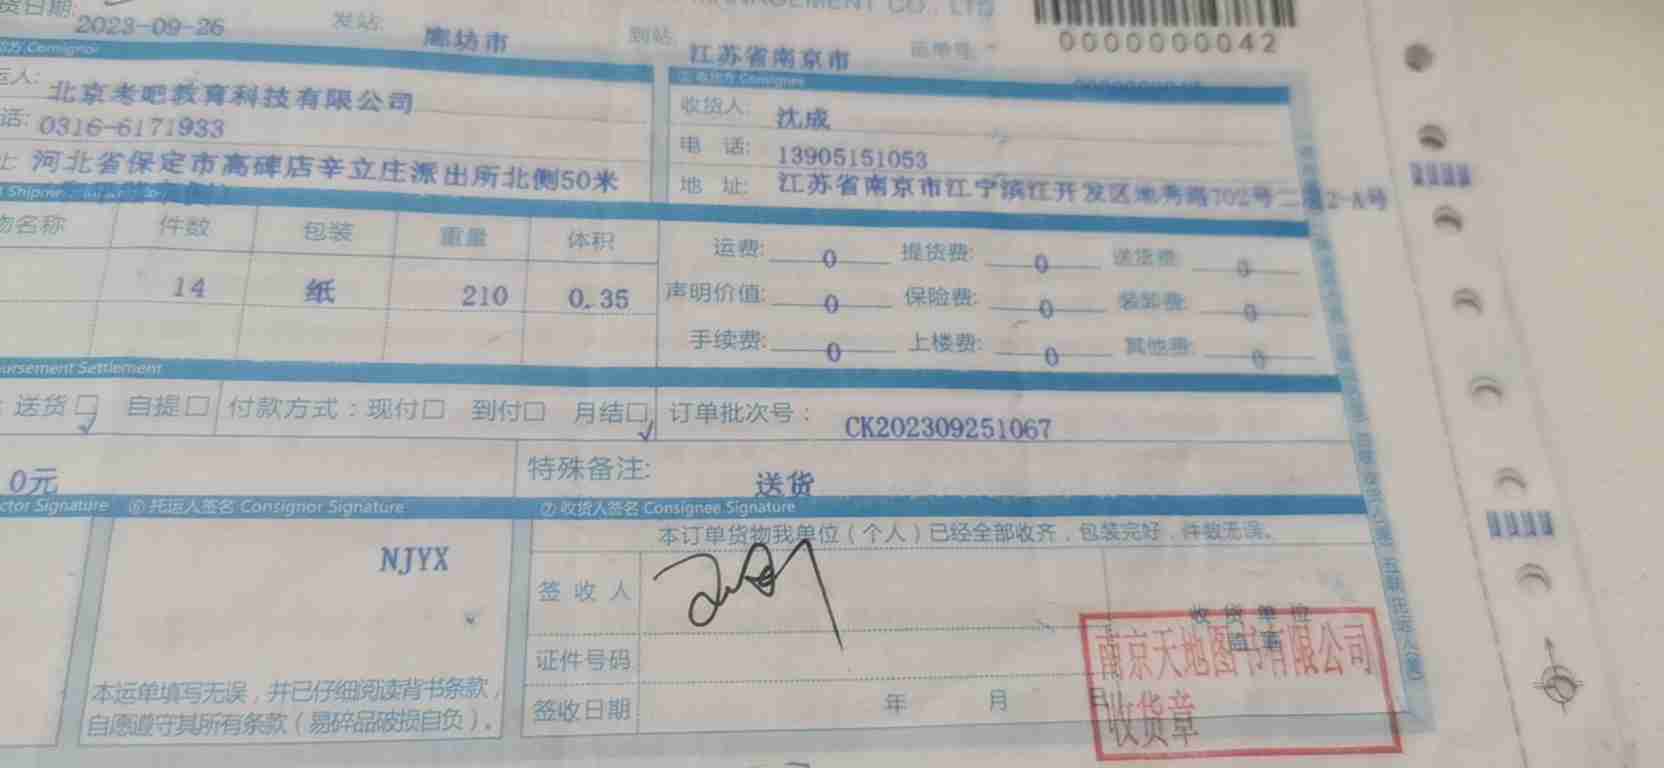 MANAGEMENT CO., LTD
货日期: 2023-09-26 发站: 廊坊市 到站: 江苏省南京市 运单号:
0000000042
Consignor
② 收货方 Consignee
运人: 北京考吧教育科技有限公司
收货人: 沈成
话: 0316-6171933
电 话: 13905151053
址 河北省保定市高碑店辛立庄派出所北侧50米
地 址: 江苏省南京市江宁滨江开发区地秀路702号二 2-A号
物名称 件数 包装 重量 体积
14 纸 210 0.35
运费: 0 提货费: 0 送货费: 0
声明价值: 0 保险费: 0 装卸费: 0
手续费: 0 上楼费: 0 其他费: 0
ursement Settlement
送货 ☐ ✓ 自提 ☐ 付款方式:现付 ☐ 到付 ☐ 月结 ☐ ✓ 订单批次号: CK202309251067
0元
特殊备注: 送货
ctor Signature ⑥ 托运人签名 Consignor Signature ⑦ 收货人签名 Consignee Signature
NJYX
本订单货物我单位(个人)已经全部收齐,包装完好,件数无误。
签 收 人
收 货 单 位
证件号码
签收日期 年 月 日
本运单填写无误,并已仔细阅读背书条款,
自愿遵守其所有条款(易碎品破损自负)。
南京天地图书有限公司
收货章